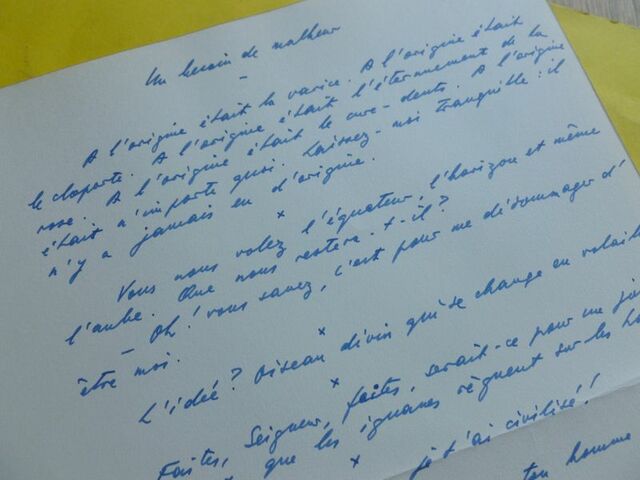 Un besoin de malheur
A l'origine était la varice. A l'origine était
le cloporte. A l'origine était l'éternuement de la
rose. A l'origine était le cure-dents. A l'origine
était n'importe quoi. Laissez-moi tranquille : il
n'y a jamais eu d'origine.
x
Vous nous volez l'équateur, l'horizon et même
l'aube. Que nous restera-t-il ?
— Oh ! vous savez, c'est pour me dédommager d'
être moi.
x
L'idée ? Oiseau divin qui se change en volaille
x
Faites, Seigneur, faites, serait-ce pour un jour
que les iguanes règnent sur les
x
je t'ai civilisé !
ton homme